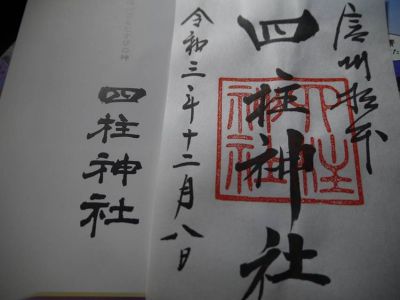 信州松本
四柱神社
令和三年十二月八日
四柱神社